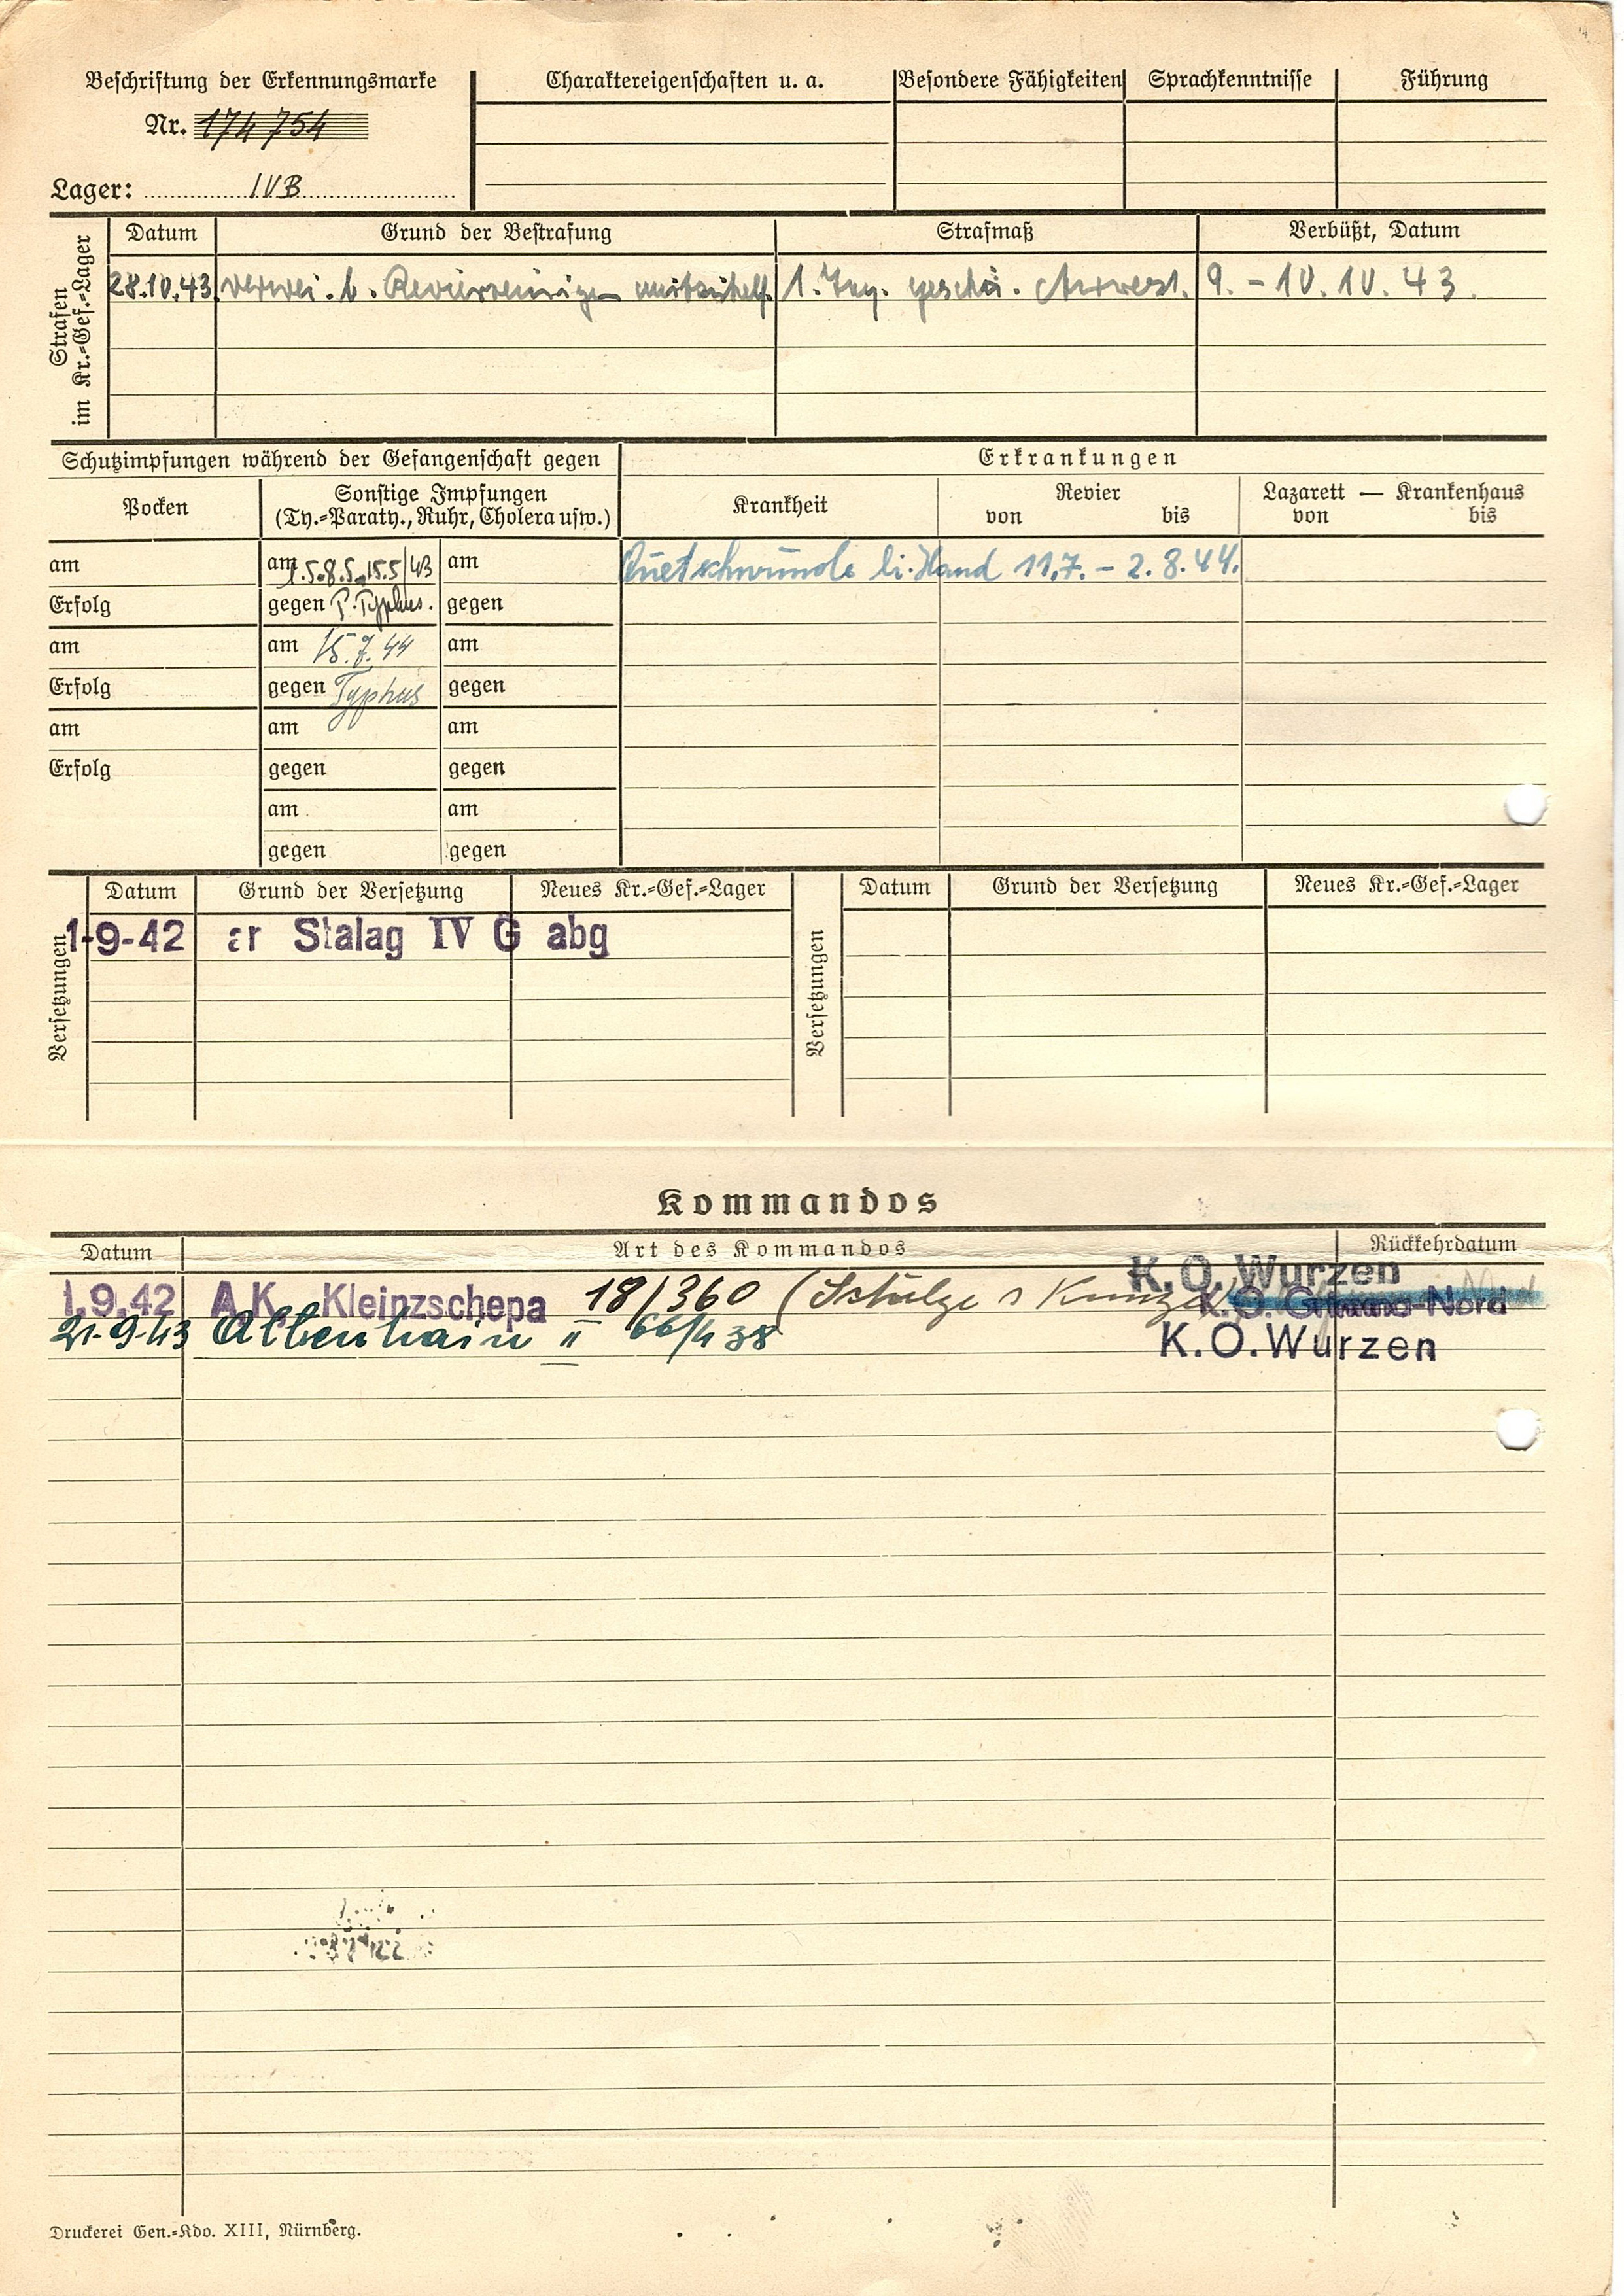 Beschriftung der Erkennungsmarke
Nr. 174754
Lager: IVB
Charaktereigenschaften u. a.
Besondere Fähigkeiten
Sprachkenntnisse
Führung
Strafen
im Kr.=Gef.=Lager
Datum Grund der Bestrafung Strafmaß Verbüßt, Datum
28.10.43. verwei. b. Revierreinigen mitzuhelf. 1. Tag. geschä. Arrest. 9. - 10. 10. 43.
Schutzimpfungen während der Gefangenschaft gegen
Pocken
Sonstige Impfungen
(Ty.=Paraty., Ruhr, Cholera usw.)
am
Erfolg
am
Erfolg
am
Erfolg
am 1.5.8.5.15.5/43
gegen P. Typhus.
am 15.7.44
gegen Typhus
am
gegen
am
gegen
am
gegen
am
gegen
am
gegen
am
gegen
Erkrankungen
Krankheit
Revier
von bis
Lazarett — Krankenhaus
von bis
Quetschwunde li. Hand 11.7. - 2.8.44.
Versetzungen
Datum Grund der Versetzung Neues Kr.=Gef.=Lager
1-9-42 Stalag IV G abg
Versetzungen
Datum Grund der Versetzung Neues Kr.=Gef.=Lager
Kommandos
Datum Art des Kommandos Rückkehrdatum
K.O. Wurzen
1.9.42 A.K. Kleinzschepa 18/360 (Schulze Kunze) K.O. Grimma-Nord
21-9-43 Altenhain II 66/438 K.O. Wurzen
Druckerei Gen.=Kdo. XIII, Nürnberg.